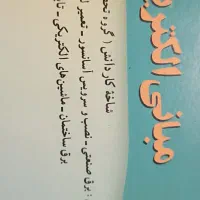 مبانی الکتر
شاخهٔ کاردانش (گروه تحص
برق صنعتی ـ نصب و سرویس آسانسور ـ تعمیر
برق ساختمان ـ ماشین‌های الکتریکی ـ تاب